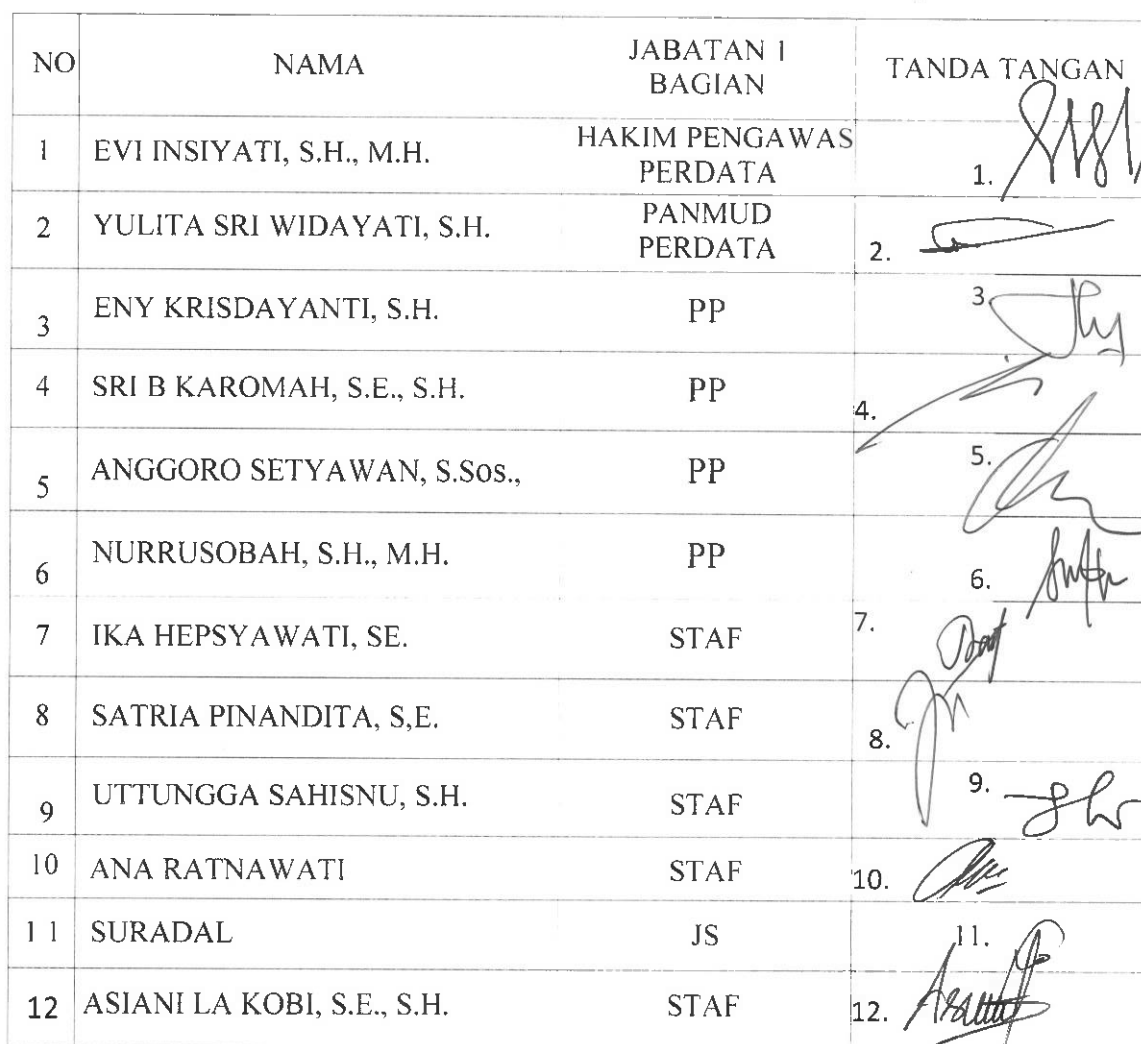 NO NAMA JABATAN 1 BAGIAN TANDA TANGAN
1 EVI INSIYATI, S.H., M.H. HAKIM PENGAWAS PERDATA 1.
2 YULITA SRI WIDAYATI, S.H. PANMUD PERDATA 2.
3 ENY KRISDAYANTI, S.H. PP 3
4 SRI B KAROMAH, S.E., S.H. PP 4.
5 ANGGORO SETYAWAN, S.Sos., PP 5.
6 NURRUSOBAH, S.H., M.H. PP 6.
7 IKA HEPSYAWATI, SE. STAF 7.
8 SATRIA PINANDITA, S,E. STAF 8.
9 UTTUNGGA SAHISNU, S.H. STAF 9.
10 ANA RATNAWATI STAF 10.
1 1 SURADAL JS 11.
12 ASIANI LA KOBI, S.E., S.H. STAF 12.